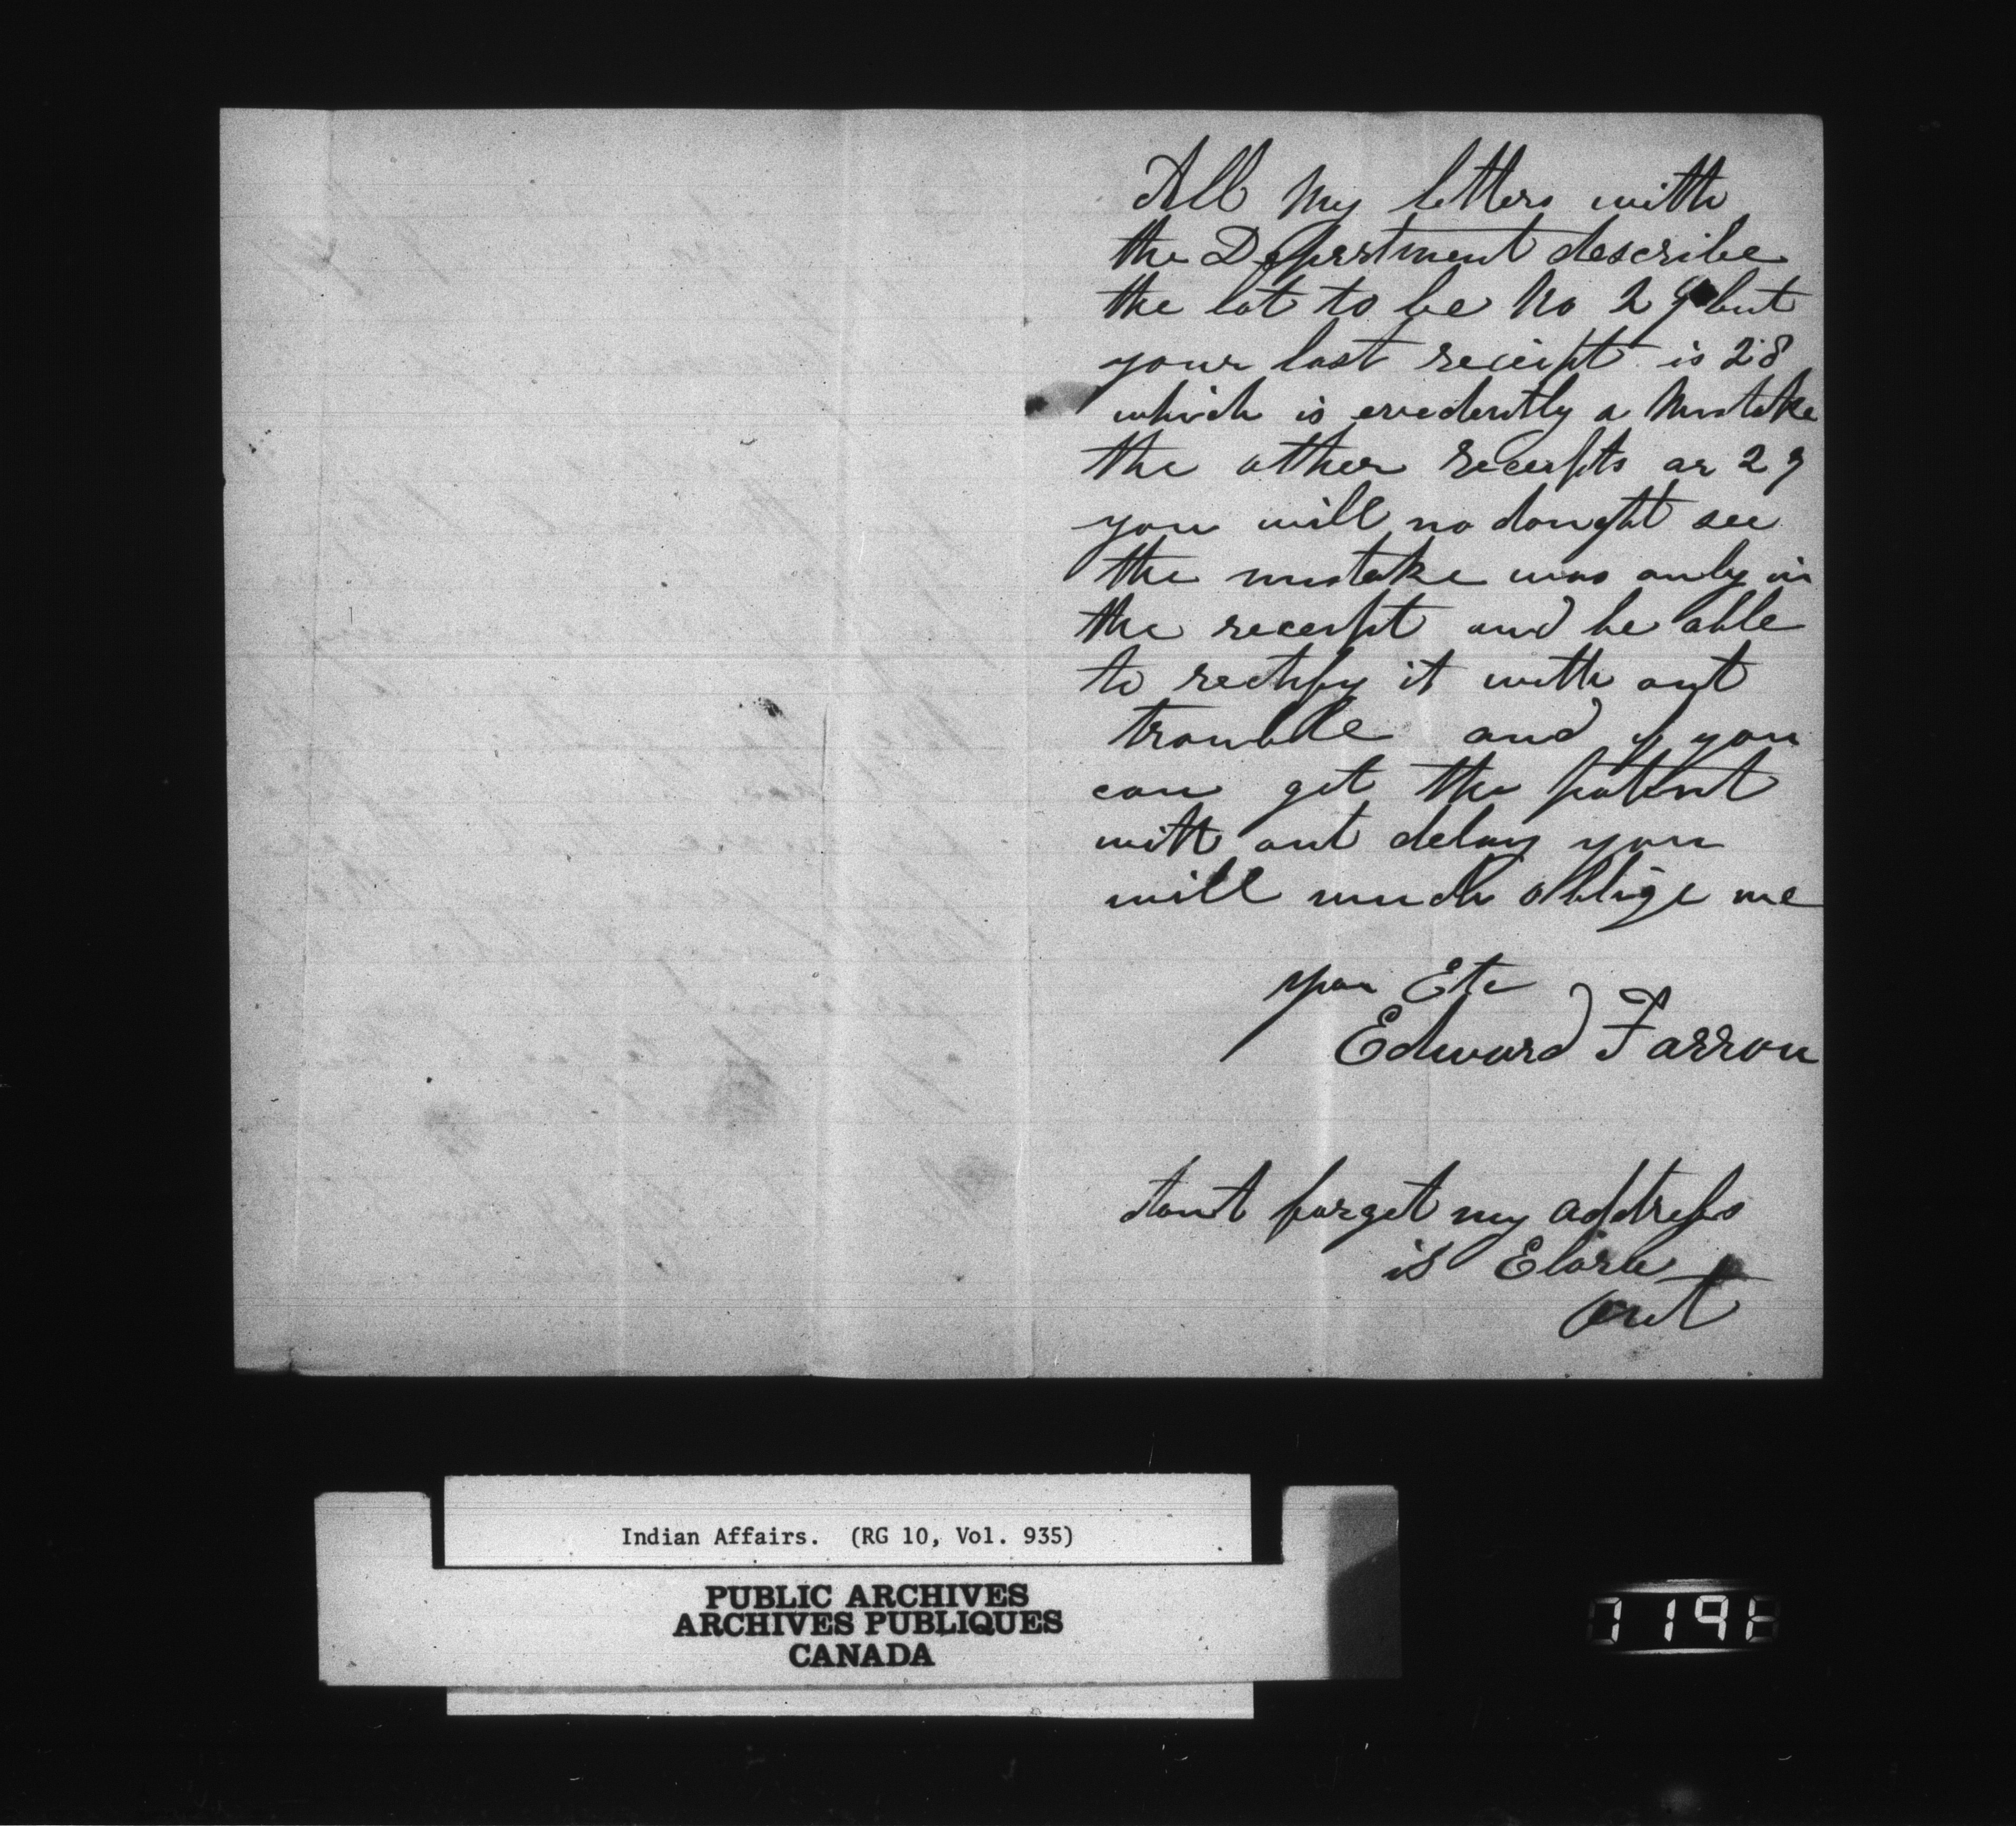 All My letters with
the Department describe
the lot to be No 29 but
your last receipt is 28
which is evedently a Mistake
the other receipts ar 29
you will no dought see
the mistake was only in
the receipt and be able
to rectify it with out
trouble and if you
can get the patent
with out delay you
will much oblige me
your Etc
Edward Farrow
dont forget my address
is Elora
Ont
Indian Affairs. (RG 10, Vol. 935)
PUBLIC ARCHIVES
ARCHIVES PUBLIQUES
CANADA